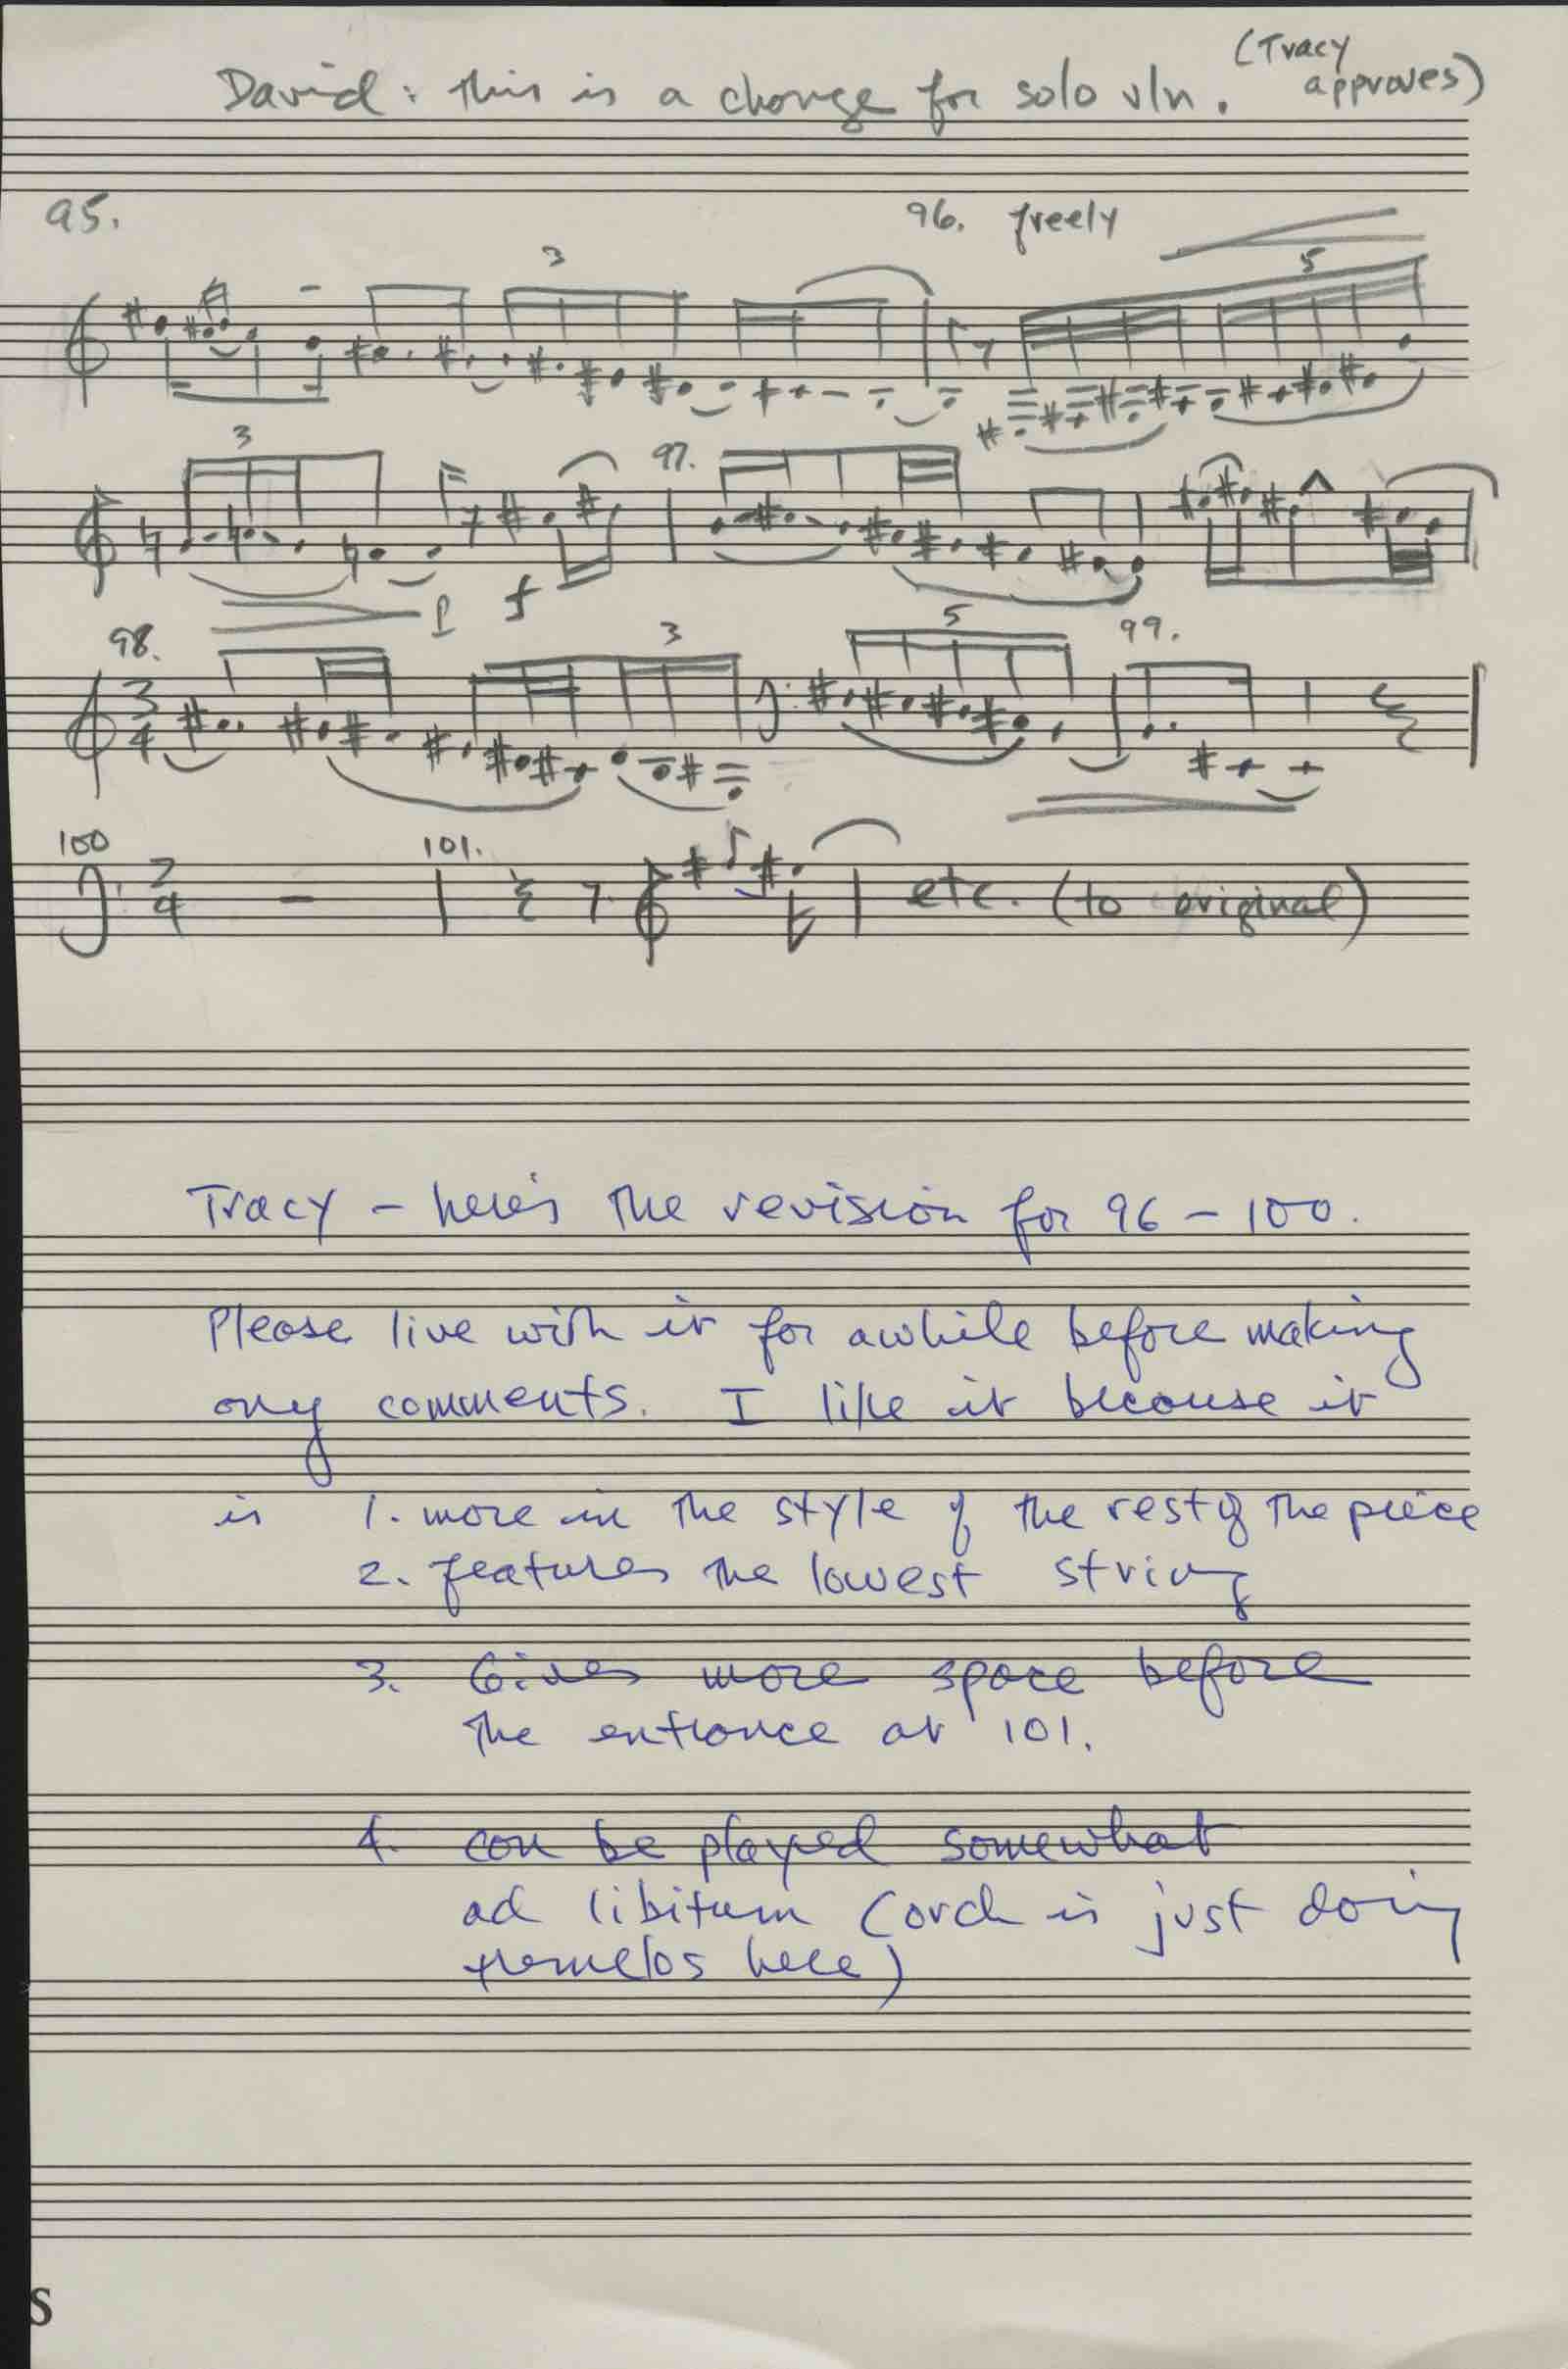 (Tracy
approves)
David: this is a change for solo vln.
95.
96. freely
3
5
3
97.
p
f
98.
3
5
99.
3
4
100
101.
2
4
etc. (to original)
Tracy – here's the revision for 96 – 100.
Please live with it for awhile before making
any comments. I like it because it
is 1. more in the style of the rest of the piece
2. features the lowest string
3. Gives more space before
the entrance at 101.
4. can be played somewhat
ad libitum (orch is just doing
tremelos here)
S